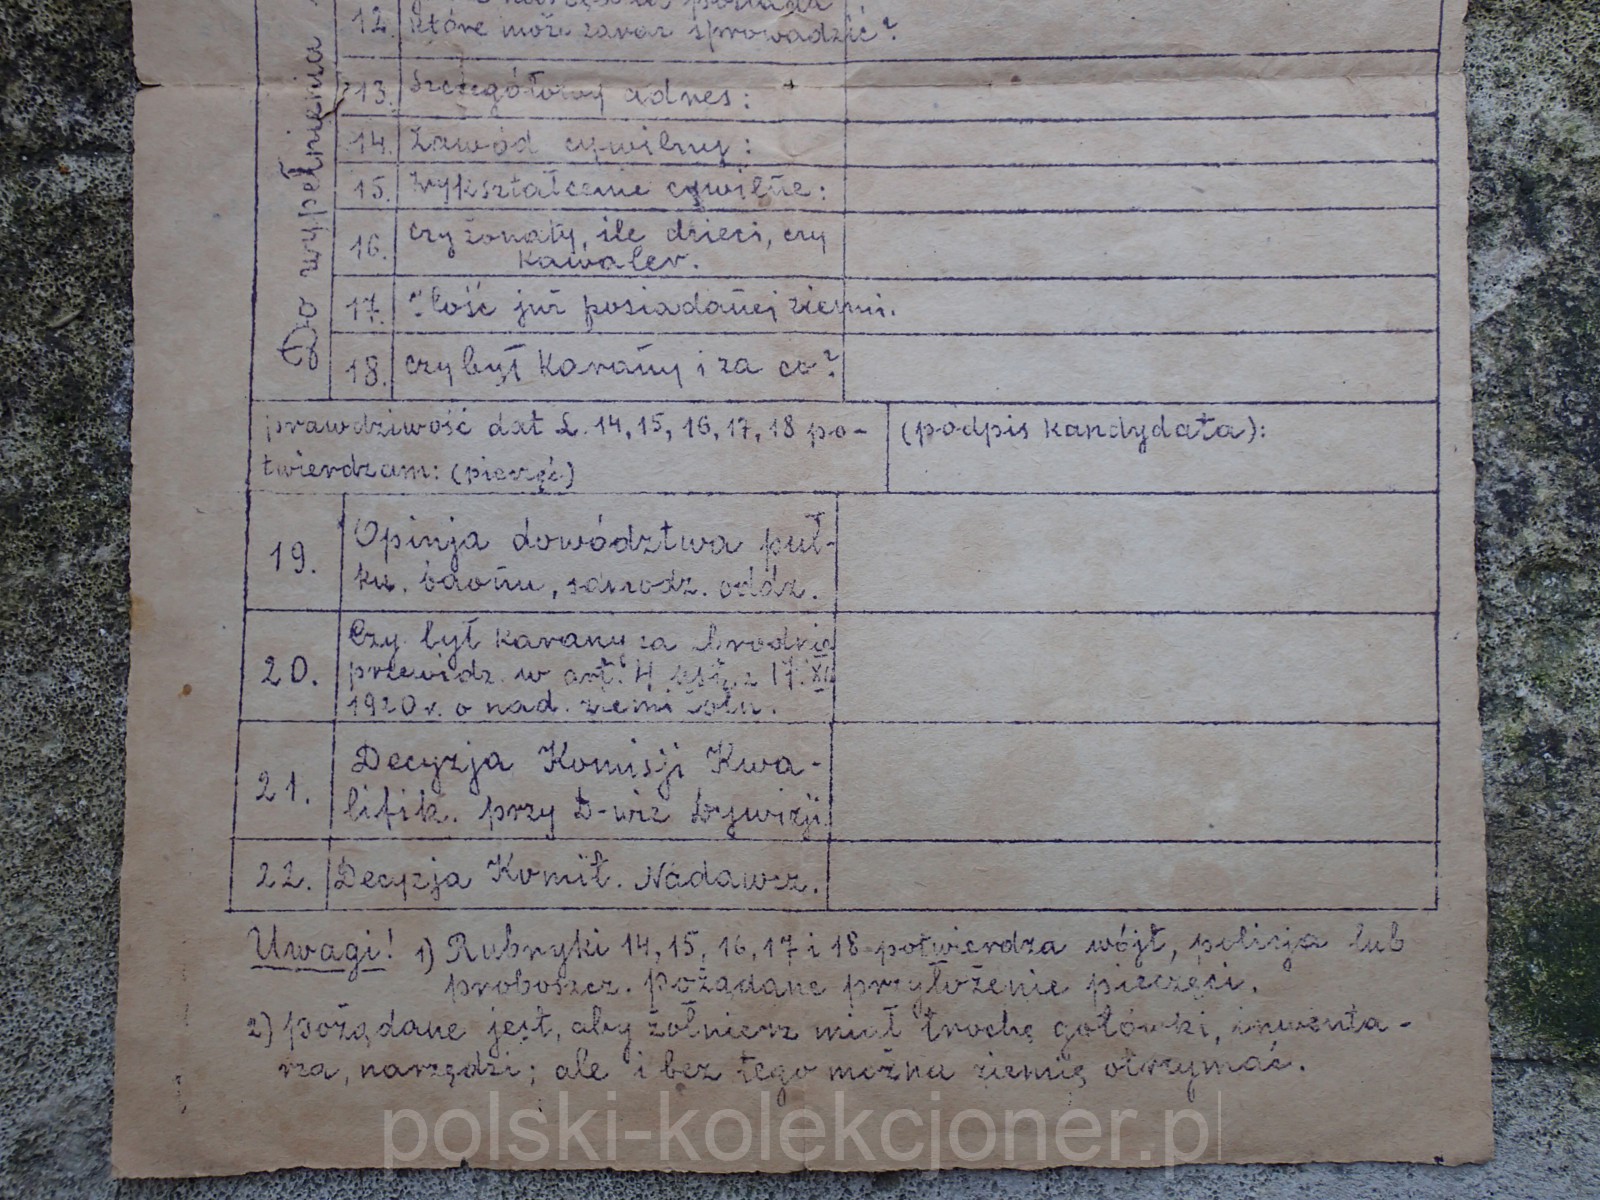 Do wypełnienia
12. które może zaraz sprowadzić?
13. Szczegółowy adres:
14. Zawód cywilny:
15. Wykształcenie cywilne:
16. czy żonaty, ile dzieci, czy
kawaler.
17. Ilość już posiadanej ziemi.
18. czy był karany i za co?
prawdziwość dat L. 14, 15, 16, 17, 18 po-
twierdzam: (pieczęć)
(podpis kandydata):
19. Opinja dowództwa puł-
ku. baonu, samodz. oddz.
20. Czy był karany za zbrodnię
przewidz. w art. 4 ust. z 17.XII
1920 r. o nad. ziemi żołn.
21. Decyzja Komisji Kwa-
lifik. przy D-wie Dywizji
22. Decyzja Komit. Nadawcz.
Uwagi! 1) Rubryki 14, 15, 16, 17 i 18 potwierdza wójt, policja lub
proboszcz. Pożądane przyłożenie pieczęci.
2) Pożądane jest, aby żołnierz miał trochę gotówki, inwenta-
rza, narzędzi; ale i bez tego można ziemię otrzymać.
polski-kolekcjoner.pl